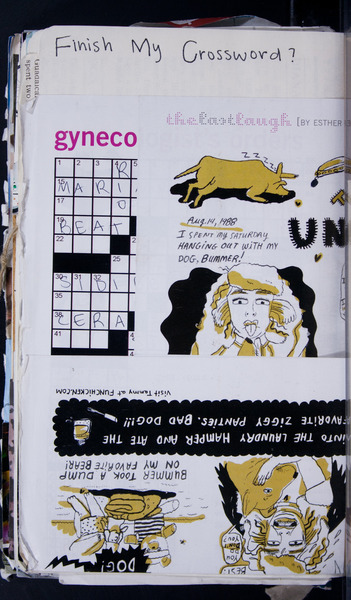 Finish My Crossword?
spent two
thelastlaugh [BY ESTHER
gyneco
1 2 3 4 5
R
15
MARI
17
O
19
BEAT
22
25
30 31 32
SIBI
35
38
CERA
41
zzzz
Aug. 14, 1988
I SPENT MY SATURDAY
HANGING OUT WITH MY
DOG, BUMMER!
UN
Visit Tammy at FUNCHICKEN.COM
INTO THE LAUNDRY HAMPER AND ATE THE
FAVORITE ZIGGY PANTIES. BAD DOG!!!
BUMMER TOOK A DUMP
ON MY FAVORITE BEAR!
DOG!
BEST